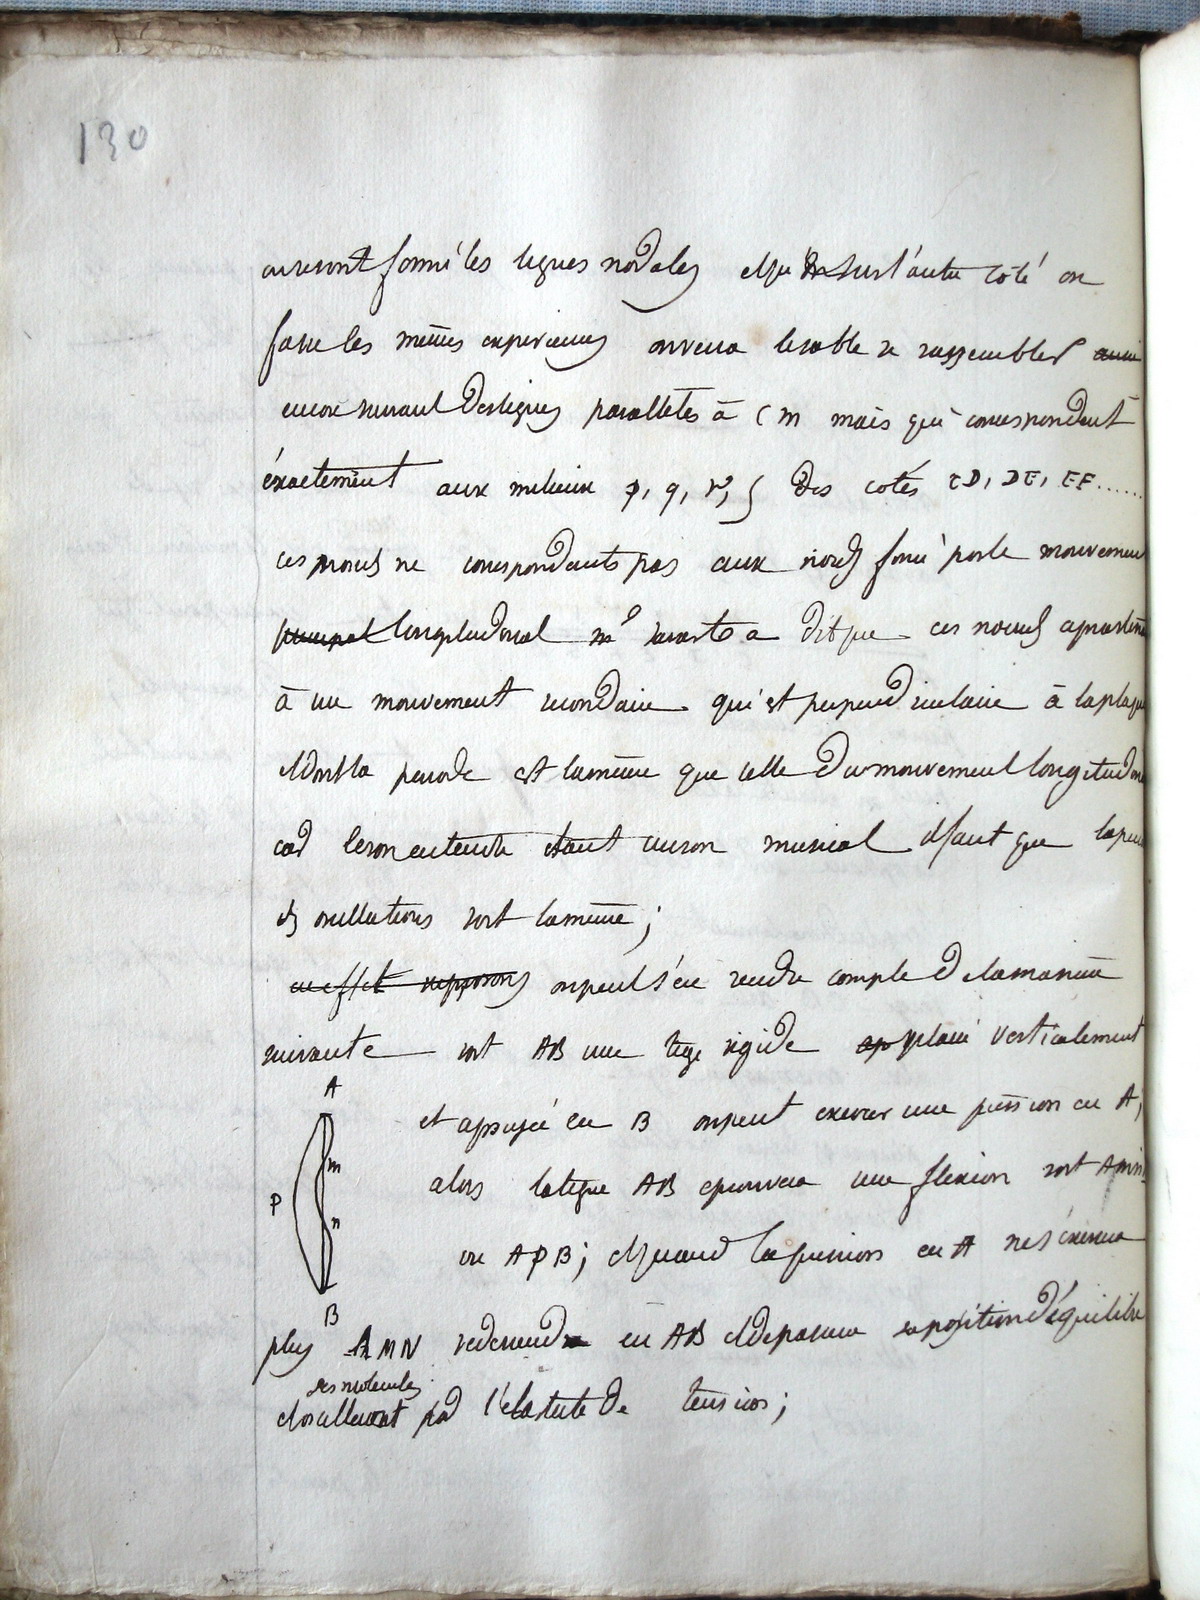 130
auront formé les lignes nodales et qu'sur l'autre coté on
fasse les mêmes experiences on verra le sable se rassembler aussi
encore suivant des lignes paralleles à Cm mais qui correspondent
éxactement aux milieux p, q, r, s des cotés CD, DE, EF......
ces nœuds ne correspondants pas aux nœuds formé par le mouvement
principal longitudinal mr savart a dit que ces nœuds
à un mouvement secondaire qui est perpendiculaire à la plaque
et dont la periode est la même que celle du mouvement
càd le son entendu étant un son musical il faut que la
des oscillations soit la même;
en effet supposons on peut s'en rendre compte de la maniere
suivante soit AB une tige rigide ap placée verticalement
A
et appuyée en B on peut exercer une pression en A,
m
alors la tige AB eprouvera une flexion soit
P
n
ou APB; et quand la pression en A ne s'exercera
B
plus AMN reviendra en AB et depassera sa position d'équilibre
des molecules
et oscilleront par l'élasticité de tension;